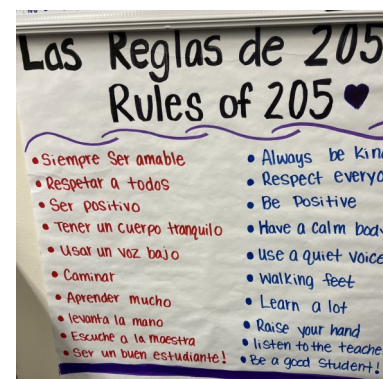 Las Reglas de 205
Rules of 205
• Siempre Ser amable
• Respetar a todos
• Ser positivo
• Tener un cuerpo tranquilo
• Usar un voz bajo
• Caminar
• Aprender mucho
• levanta la mano
• Escuche a la maestra
• Ser un buen estudiante!
• Always be Kin
• Respect everyo
• Be Positive
• Have a calm body
• use a quiet voice
• Walking feet
• Learn a lot
• Raise your hand
• listen to the teache
• Be a good Student!